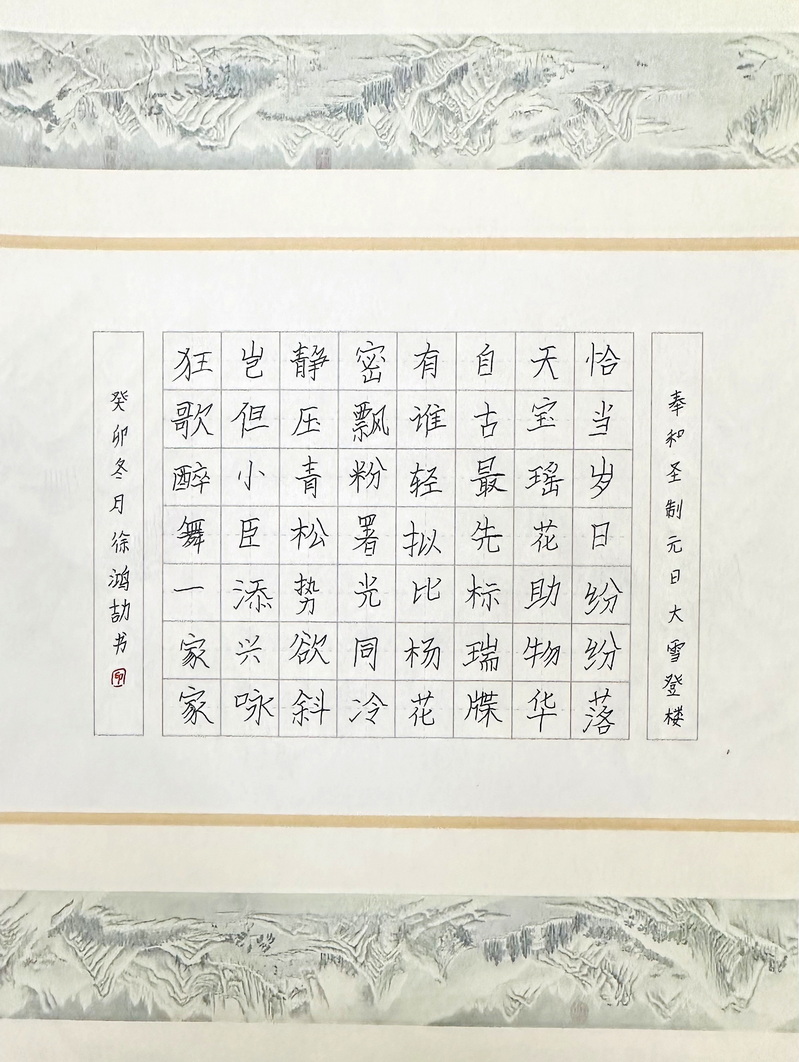 奉和圣制元日大雪登楼
恰当岁日纷纷落
天宝瑶花助物华
自古最先标瑞牒
有谁轻拟比杨花
密飘粉署光同冷
静压青松势欲斜
岂但小臣添兴咏
狂歌醉舞一家家
癸卯冬月徐鸿劼书
印